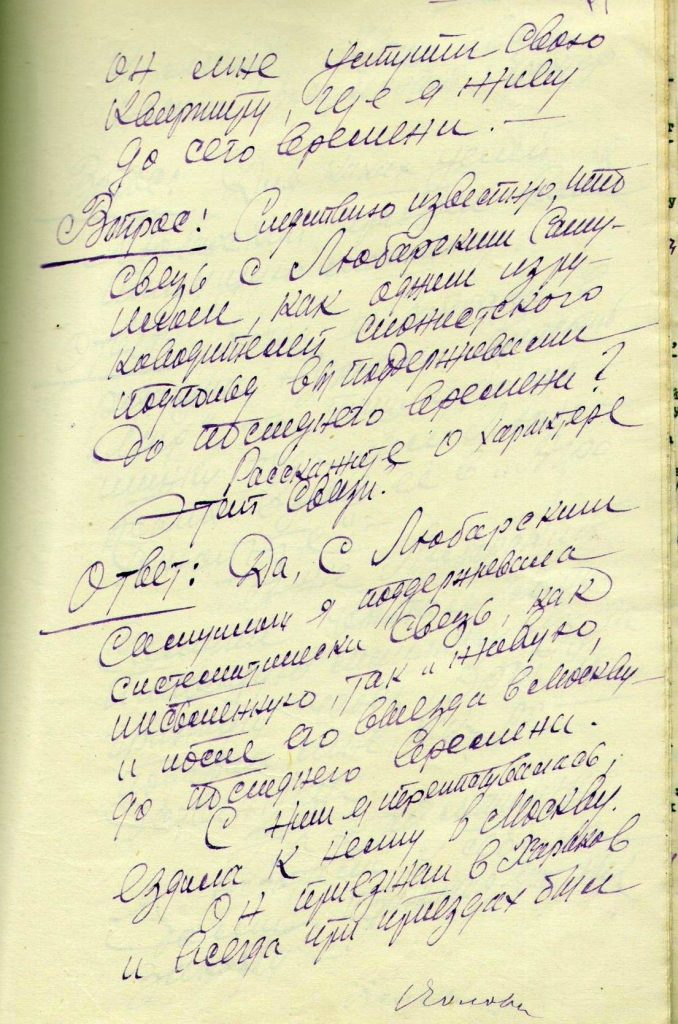 он мне уступил свою
квартиру, где я живу
до сего времени. —
Вопрос: Следствию известно, что
связь с Любарским Саму-
илом, как одним из ру-
ководителей сионистского
подполья вы поддерживали
до последнего времени?
Расскажите о характере
этой связи.
Ответ: Да, с Любарским
Самуилом я поддерживала
систематически связь, как
письменную, так и живую,
и после его выезда в Москву
до последнего времени.
С ним я переписывалась,
ездила к нему в Москву.
Он приезжал в Харьков
и всегда при приездах был